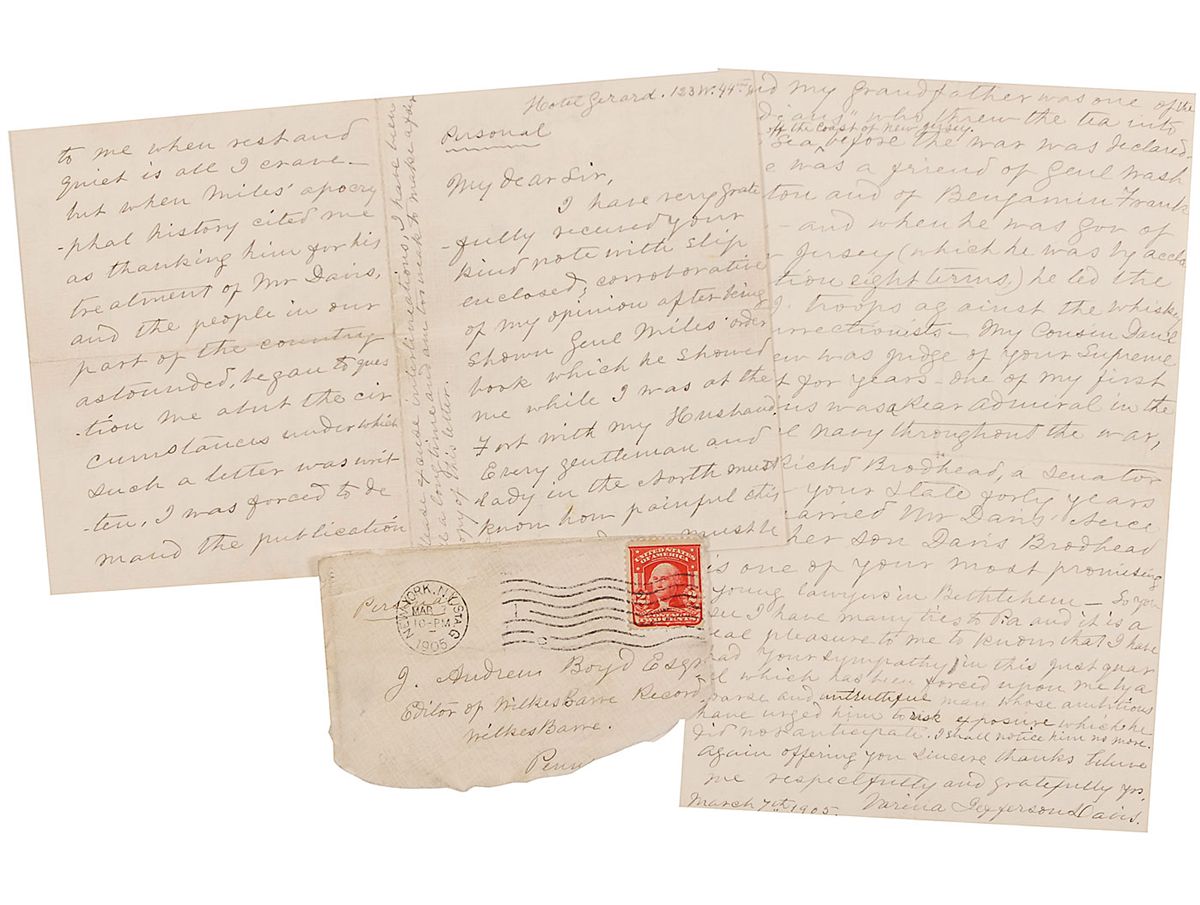 Hotel Gerard. 123 W. 44th
Personal
My dear Sir,
I have very grate
-fully received your
kind note with slip
enclosed, corroborative
of my opinion after being
shown Genl Miles' order
book which he showed
me while I was at the
Fort with my Husband
Every gentleman and
lady in the North must
know how painful
must be
to me when rest and
quiet is all I crave –
but when Miles' apocry
-phal history cited me
as thanking him for his
treatment of Mr Davis,
and the people in our
part of the country
astounded, began to ques
-tion me abut the cir
cumstances under which
such a letter was writ
-ten, I was forced to de
mand the publication
excuse interlineations, I have been
a long time and am too weak to make a
copy of this letter.
my grandfather was one of the
who threw the tea into
off the coast of New Jersey.
Sea before the war was declared –
was a friend of Genl Wash
ton and of Benjamin Frank
– and when he was gov of
Jersey (which he was by accla
tion eight terms,) he led the
troops against the whiskey
urrectionists – My Cousin
was judge of your Supreme
for years – one of my first
us was a Rear Admiral in the
navy throughout the war,
Richd Brodhead, a Senator
your State forty years
arried Mr Davis' niece
her son Davis Brodhead
is one of your most promising
young lawyers in Bethlehem – So you
see I have many ties to Pa and it is a
eal pleasure to me to know that I have
had your sympathy in this just quar
el which has been forced upon me by a
coarse and untruthful man whose ambitions
have urged him to risk exposure which he
did not anticipate. I shall notice him no more.
Again offering you sincere thanks believe
me respectfully and gratefully yrs,
March 7th 1905. Varina Jefferson Davis.
Personal
NEW YORK, N.Y. STA G
MAR 7
10-PM
1905
UNITED STATES
OF AMERICA
2 2
POSTAGE
TWO CENTS
J. Andrew Boyd Esqr
Editor of Wilkes Barre Record
Wilkes Barre.
Penn